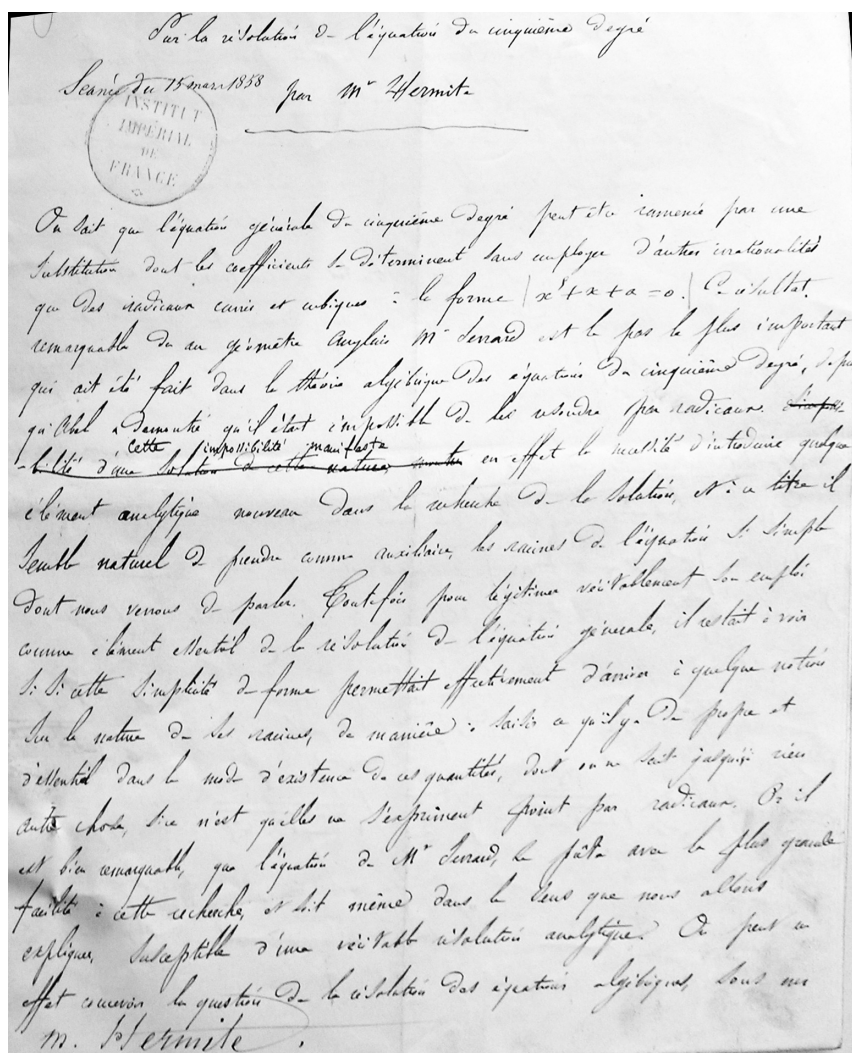 Sur la résolution de l'équation du cinquième degré
Séance du 15 mars 1858
par Mr Hermite
INSTITUT
IMPÉRIAL
DE
FRANCE
On sait que l'équation générale du cinquième degré peut être ramenée par une
substitution dont les coefficients se déterminent sans employer d'autres irrationalités
que des radicaux carrés et cubiques à la forme x⁵ + x + a = 0. Ce résultat
remarquable du au géomètre anglais Mr Jerrard est le pas le plus important
qui ait été fait dans la théorie algébrique des équations du cinquième degré, depuis
qu'Abel a démontré qu'il était impossible de les résoudre par radicaux. L'impossi-
cette impossibilité manifeste
-bilité d'une solution de cette nature en effet la nécessité d'introduire quelque
élément analytique nouveau dans la recherche de la solution, et à ce titre il
semble naturel de prendre comme auxiliaire, les racines de l'équation si simple
dont nous venons de parler. Toutefois pour légitimer véritablement son emploi
comme élément essentiel de la résolution de l'équation générale, il restait à voir
si si cette simplicité de forme permettait effectivement d'arriver à quelque notion
sur la nature de ses racines, de manière à saisir ce qu'il y a de propre et
d'essentiel dans le mode d'existence de ces quantités, dont on ne sait jusqu'ici rien
autre chose, si ce n'est qu'elles ne s'expriment point par radicaux. Or il
est bien remarquable, que l'équation de Mr Jerrard, se prête avec la plus grande
facilité à cette recherche, et soit même dans le sens que nous allons
expliquer, susceptible d'une véritable résolution analytique. On peut en
effet concevoir la question de la résolution des équations algébriques, sous un
M. Hermite.